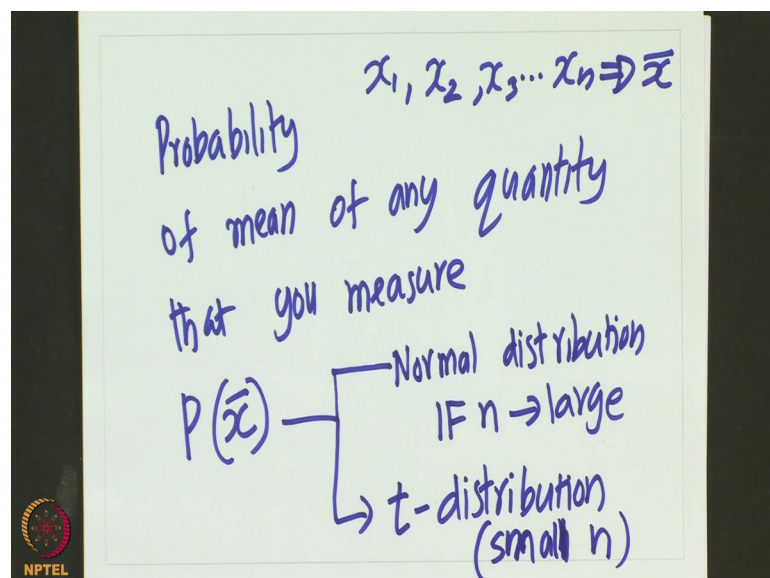 x₁, x₂, x₃... xₙ ⇒ x̄
Probability
of mean of any quantity
that you measure
P(x̄)
Normal distribution
IF n → large
t-distribution
(small n)
NPTEL